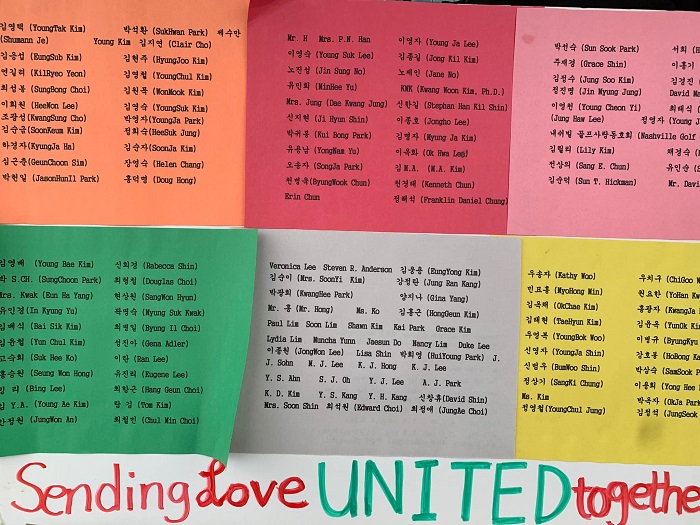 김영택 (YoungTak Kim) 박석환 (SukHwan Park) 제수만
(Shumann Je) Young Kim 김지연 (Clair Cho)
김응섭 (EungSub Kim) 김현주 (HyungJoo Kim)
연길려 (KilRyeo Yeon) 김영철 (YoungChul Kim)
최성봉 (SungBong Choi) 김원목 (WonMook Kim)
이희원 (HeeWon Lee) 김영숙 (YoungSuk Kim)
조광성 (KwangSung Cho) 박영자 (YoungJa Park)
김순금 (SoonKeum Kim) 정희숙 (HeeSuk Jung)
하경자 (KyungJa Ha) 김순자 (SoonJa Kim)
심근춘 (GeunChoon Sim) 장영숙 (Helen Chang)
박현일 (JasonHunIl Park) 홍덕명 (Doug Hong)
Mr. H Mrs. P.N. Han 이영자 (Young Ja Lee)
이영숙 (Young Suk Lee) 김종길 (Jong Kil Kim)
노진성 (Jin Sung No) 노제인 (Jane No)
유민희 (MinHee Yu) KWK (Kwang Woon Kim, Ph.D.)
Mrs. Jung (Dae Kwang Jung) 신한길 (Stephan Han Kil Shin)
신지현 (Ji Hyun Shin) 이종호 (Jongho Lee)
박귀봉 (Kui Bong Park) 김명자 (Myung Ja Kim)
유용남 (YongNam Yu) 이옥화 (Ok Hwa Lee)
오송자 (SongJa Park) 김M.A. (M.A. Kim)
천병욱 (ByungWook Chun) 천경태 (Kenneth Chun)
Erin Chun 정해석 (Franklin Daniel Chung)
박선숙 (Sun Sook Park) 서희
주재경 (Grace Shin) 이홍기
김정수 (Jung Soo Kim) 김경진
정진명 (Jin Myung Jung) David
이영천 (Young Cheon Yi) 최대
(Jung Haw Lee) 정영자 (Young
내쉬빌 골프사랑동호회 (Nashville Golf
김릴리 (Lily Kim) 채정수
천상의 (Sang E. Chun) 유민순
김순덕 (Sun T. Hickman) Mr. Davi
김영배 (Young Bae Kim) 신희경 (Rabecca Shin)
박 S.CH. (SungChoon Park) 최형철 (Douglas Choi)
Mrs. Kwak (Eun Ha Yang) 현상원 (SangWon Hyun)
유인경 (In Kyung Yu) 곽명숙 (Myung Suk Kwak)
김배식 (Bai Sik Kim) 최병일 (Byung Il Choi)
김윤철 (Yun Chul Kim) 성진아 (Gena Adler)
고숙희 (Suk Hee Ko) 이란 (Ran Lee)
홍승원 (Seung Won Hong) 유진리 (Eugene Lee)
빙 리 (Bing Lee) 최항근 (Hang Geun Choi)
김 Y.A. (Young Ae Kim) 탐 김 (Tom Kim)
안정원 (JungWon An) 최철민 (Chul Min Choi)
Veronica Lee Steven R. Anderson 김응용 (EungYong Kim)
김순이 (Mrs. SoonYi Kim) 강정란 (Jung Ran Kang)
박광희 (KwangHee Park) 양지나 (Gina Yang)
Mr. 홍 (Mr. Hong) Ms. Ko 김홍근 (HongGeun Kim)
Paul Lim Soon Lim Shawn Kim Kai Park Grace Kim
Lydia Lim Muncha Yunn Jaesun Do Nancy Lim Duke Lee
이종원 (JongWon Lee) Lisa Shin 박희영 (HuiYoung Park) J.
J. Sohn M. J. Lee K. J. Hong K. J. Lee
Y. S. Ahn S. J. Oh Y. J. Lee A. J. Park
K. D. Kim Y. S. Kang Y. H. Kang 신창휴(David Shin)
Mrs. Soon Shin 최석원 (Edward Choi) 최정애 (JungAe Choi)
우송자 (Kathy Woo) 우치구 (ChiGoo W
민묘홍 (MyoHong Min) 원요한 (YoHan
김옥채 (OkChae Kim) 홍광자 (KwangJa
김태현 (TaeHyun Kim) 김윤옥 (YunOk
우영복 (YoungBok Woo) 이병규 (ByungKyu
신영자 (YoungJa Shin) 강호봉 (HoBong Ka
신범우 (BumWoo Shin) 박삼숙 (SamSook P
정상기 (SangKi Chung) 이용희 (Yong Hee
Ms. Kim 박옥자 (OkJa Park
정영철(YoungChul Jung) 김정석 (JungSeok
Sending Love UNITED togethe